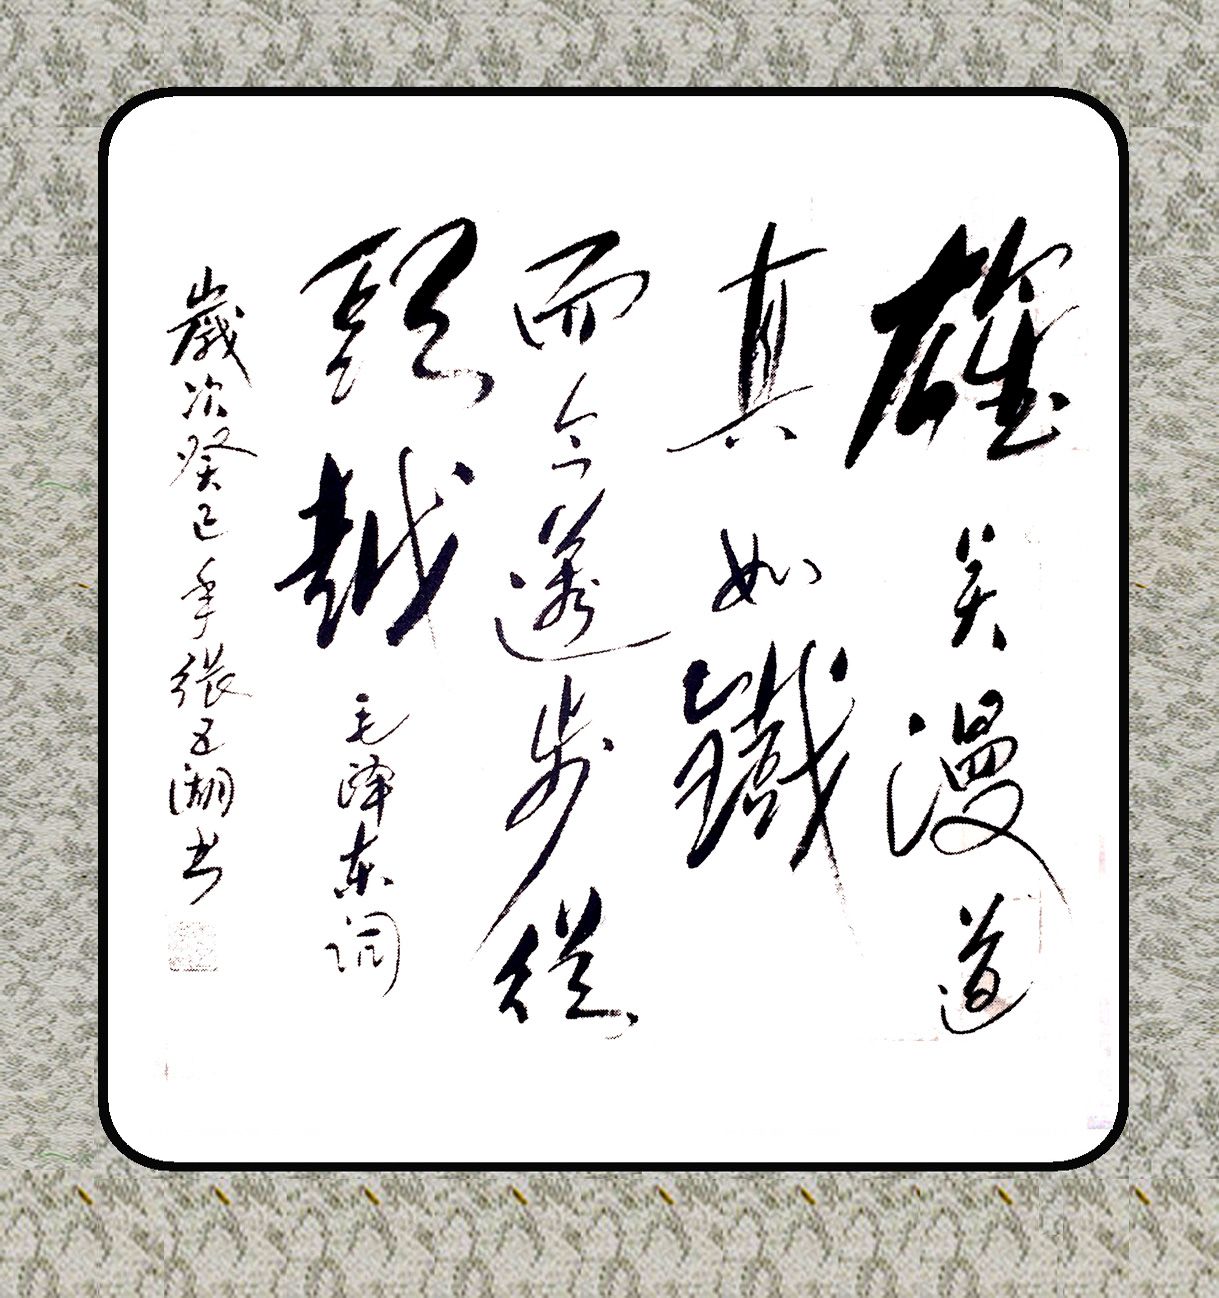 雄关漫道
真如鐵
而今邁步從
頭越 毛泽东词
歲次癸巳年張五湖书